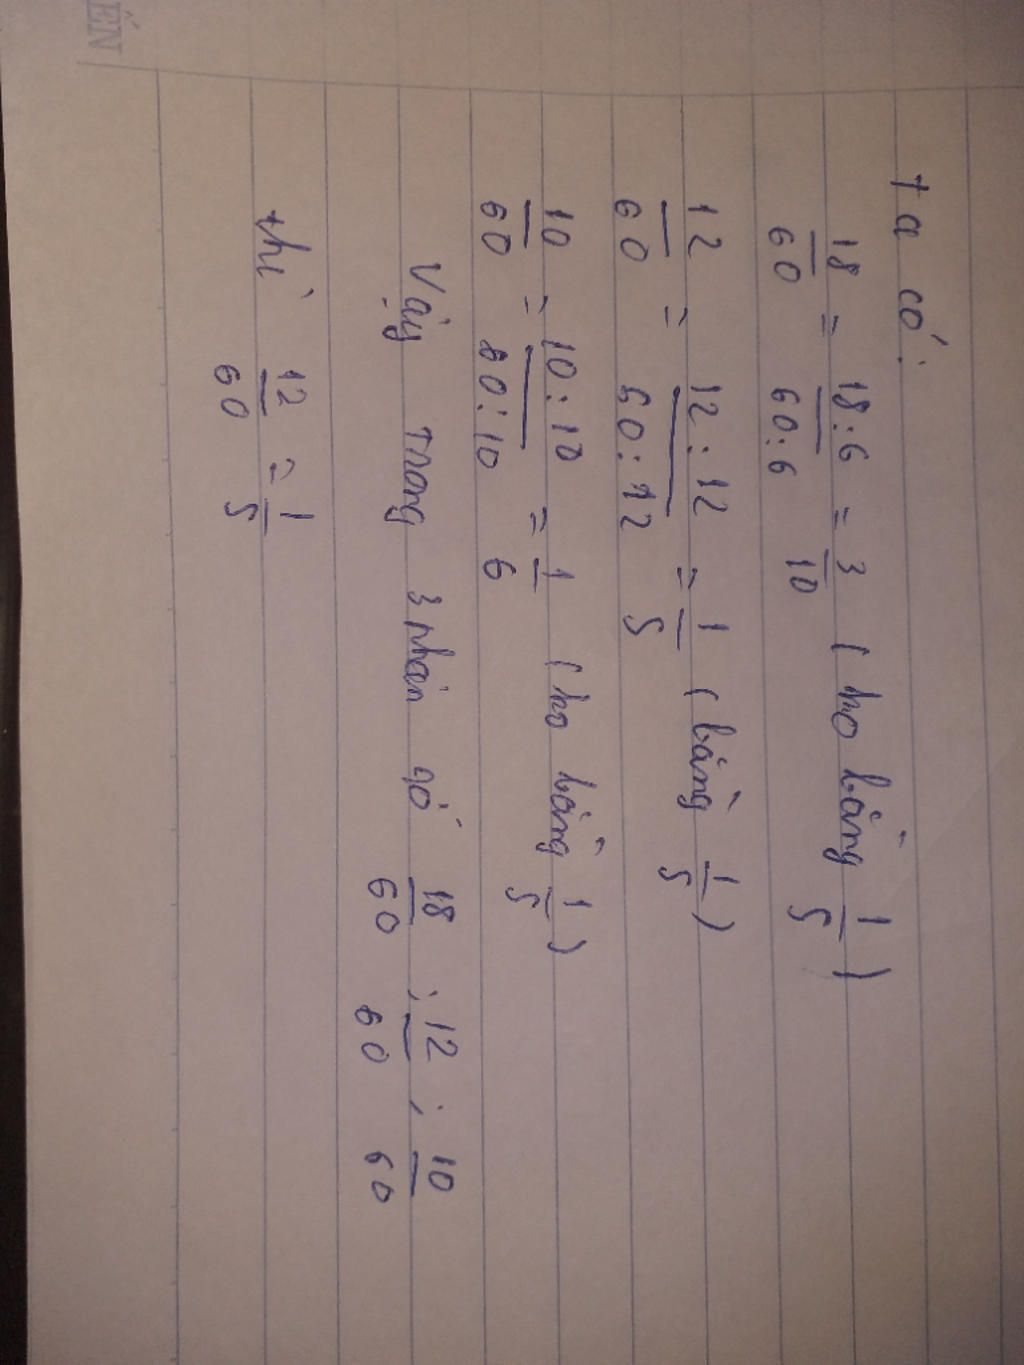 ta có:
18/60 = 18:6/60:6 = 3/10 (ko bằng 1/5)
12/60 = 12:12/60:12 = 1/5 (bằng 1/5)
10/60 = 10:10/80:10 = 1/6 (ko bằng 1/5)
Vậy trong 3 nhãn gó 18/60 ; 12/60 ; 10/60
thì 12/60 = 1/5
ÊN